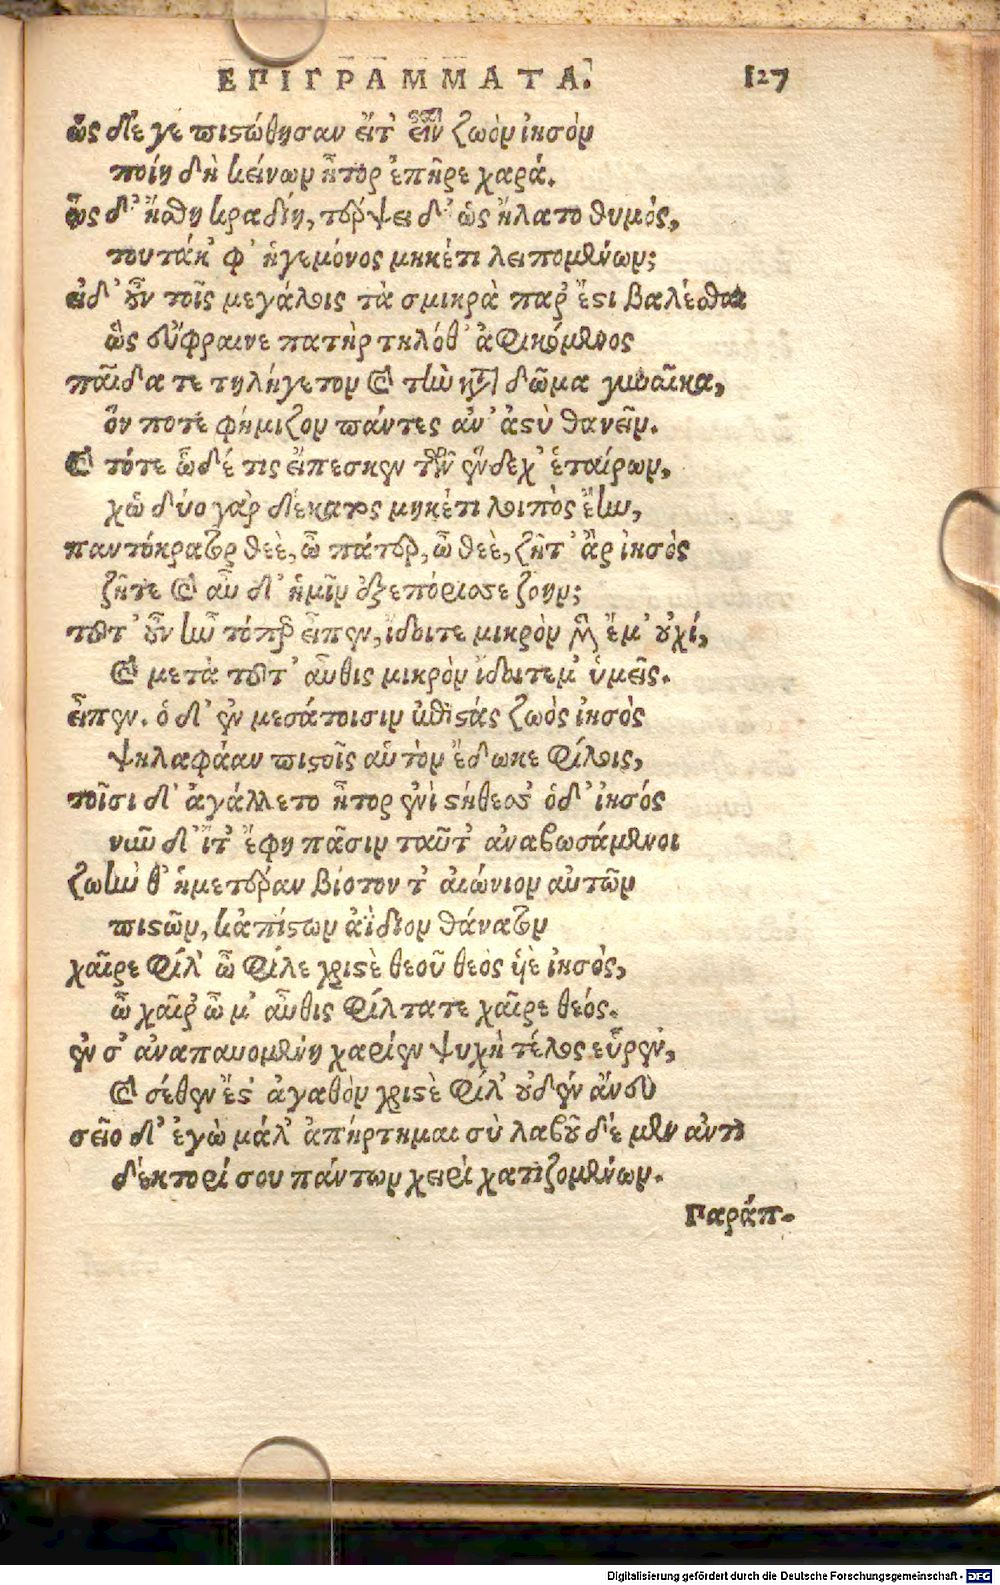 ΕΠΙΓΡΑΜΜΑΤΑ. 127
ὣς δέ γε πιστώθησαν εἴτ' εἶν ζωὸν ἰησὸν
ποίη δὴ κείνων ἦτορ ἐπῆρε χαρά.
ὣς δ' ἤσθη κραδίη, τέρψει δ' ὡς ἥλατο θυμός,
τουτάκ' φ' ἡγεμόνος μηκέτι λειπομένων;
εἰδ' οὖν τοῖς μεγάλοις τὰ σμικρὰ παρ' ἔστι βαλέσθαι
ὣς εὔφραινε πατὴρ τηλόθ' ἀφικόμενος
παῖδα τε τηλύγετον καὶ τὴν κατὰ δῶμα γυναῖκα,
ὅν ποτε φήμιζον πάντες ἀν' ἄστυ θανεῖν.
καὶ τότε ὧδέ τις εἴπεσκεν τῶν ἕνδεχ' ἑταίρων,
χὡ δύο γὰρ δέκατος μηκέτι λοιπὸς ἔην,
παντόκρατορ θεὲ, ὦ πάτερ, ὦ θεὲ, ζῆτ' ἂρ ἰησὸς
ζῆτε καὶ αὖ δ' ἡμῖν ἐξεπόρισσε ζοην;
τοῦτ' οὖν ἦν τόπερ εἶπεν, ἴδοιτε μικρὸν καὶ ἔμ' οὐχί,
καὶ μετὰ τοῦτ' αὖθις μικρὸν ἴδοιτεμ' ὑμεῖς.
εἶπεν. ὁ δ' ἐν μεσάτοισιν καθιστάς ζωὸς ἰησὸς
ψηλαφάαν πιστοῖς αὑτὸν ἔδωκε φίλοις,
τοῖσι δ' ἀγάλλετο ἦτορ ἐνὶ στήθεσσ' ὁδ' ἰησός
νῦν δ' ἴτ' ἔφη πᾶσιν ταῦτ' ἀναβωσάμενοι
ζωὴν θ' ἡμετέραν βίοτον τ' αἰώνιον αὐτῶν
πιστῶν, κἀπίστων ἀΐδιον θάνατον
χαῖρε φίλ' ὦ φίλε χριστὲ θεοῦ θεὸς ἠὲ ἰησὸς,
ὦ χαῖρ' ὦ μ' αὖθις φίλτατε χαῖρε θεός.
ἐν σ' ἀναπαυομένη χαρίεν ψυχὴ τέλος εὗρεν,
καὶ σέθεν ἔστ' ἀγαθὸν χριστὲ φίλ' οὐδὲν ἄνευ
σεῖο δ' ἐγὼ μάλ' ἀπήρτημαι σὺ λαβοῦ δέ μεν αὐτὸ
δέκτορί σου πάντων χειρὶ χατιζομένων.
Παράπ-
Digitalisierung gefördert durch die Deutsche Forschungsgemeinschaft - DFG